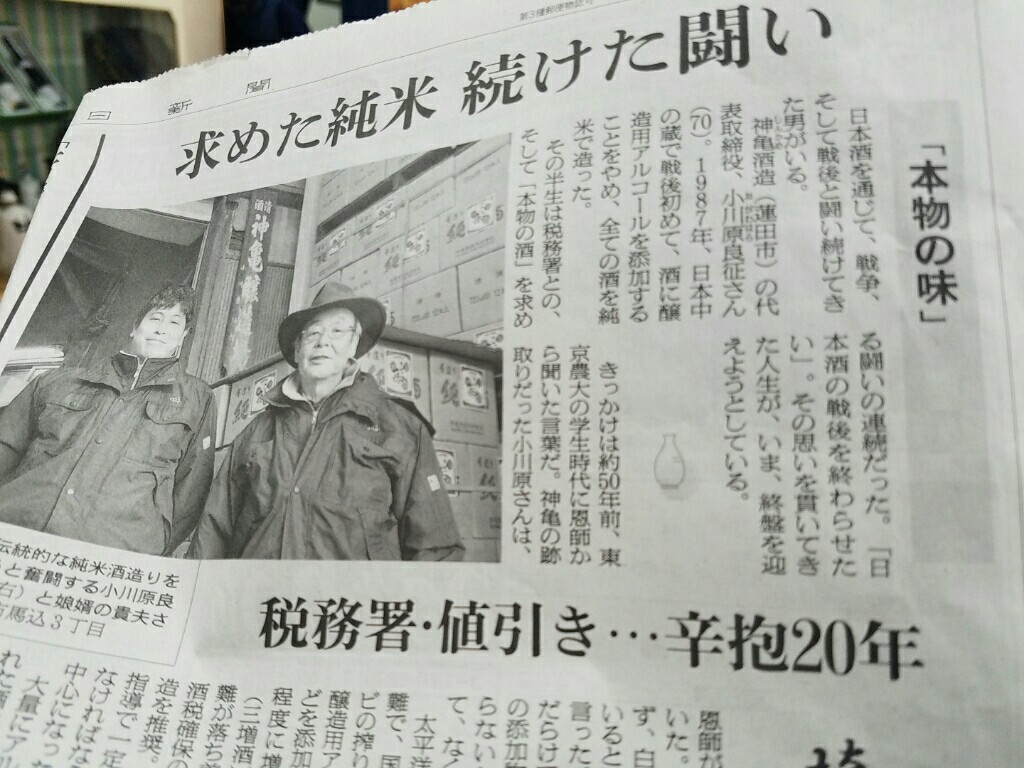 第3種郵便物認可
新聞
求めた純米 続けた闘い
「本物の味」
日本酒を通じて、戦争、
そして戦後と闘い続けてき
た男がいる。
神亀酒造(蓮田市)の代
表取締役、小川原良征さん
(70)。1987年、日本中
の蔵で戦後初めて、酒に醸
造用アルコールを添加する
ことをやめ、全ての酒を純
米で造った。
その半生は税務署との、
そして「本物の酒」を求め
る闘いの連続だった。「日
本酒の戦後を終わらせた
い」。その思いを貫いてき
た人生が、いま、終盤を迎
えようとしている。
きっかけは約50年前、東
京農大の学生時代に恩師か
ら聞いた言葉だ。神亀の跡
取りだった小川原さんは、
清酒
神亀
純
伝統的な純米酒造りを
と奮闘する小川原良
右)と娘婿の貴夫さ
馬込3丁目
税務署・値引き…辛抱20年
恩師が
いた。
ず、白
いると
言った
だらけ
の添加
らない
て、なく
太平洋
難で、国
ビの搾り
醸造用ア
どを添加
程度に増
(三増酒
難が落ち
酒税確保の
造を推奨。
指導で一定
なければな
中心になっ
大量にアル
れた
埼